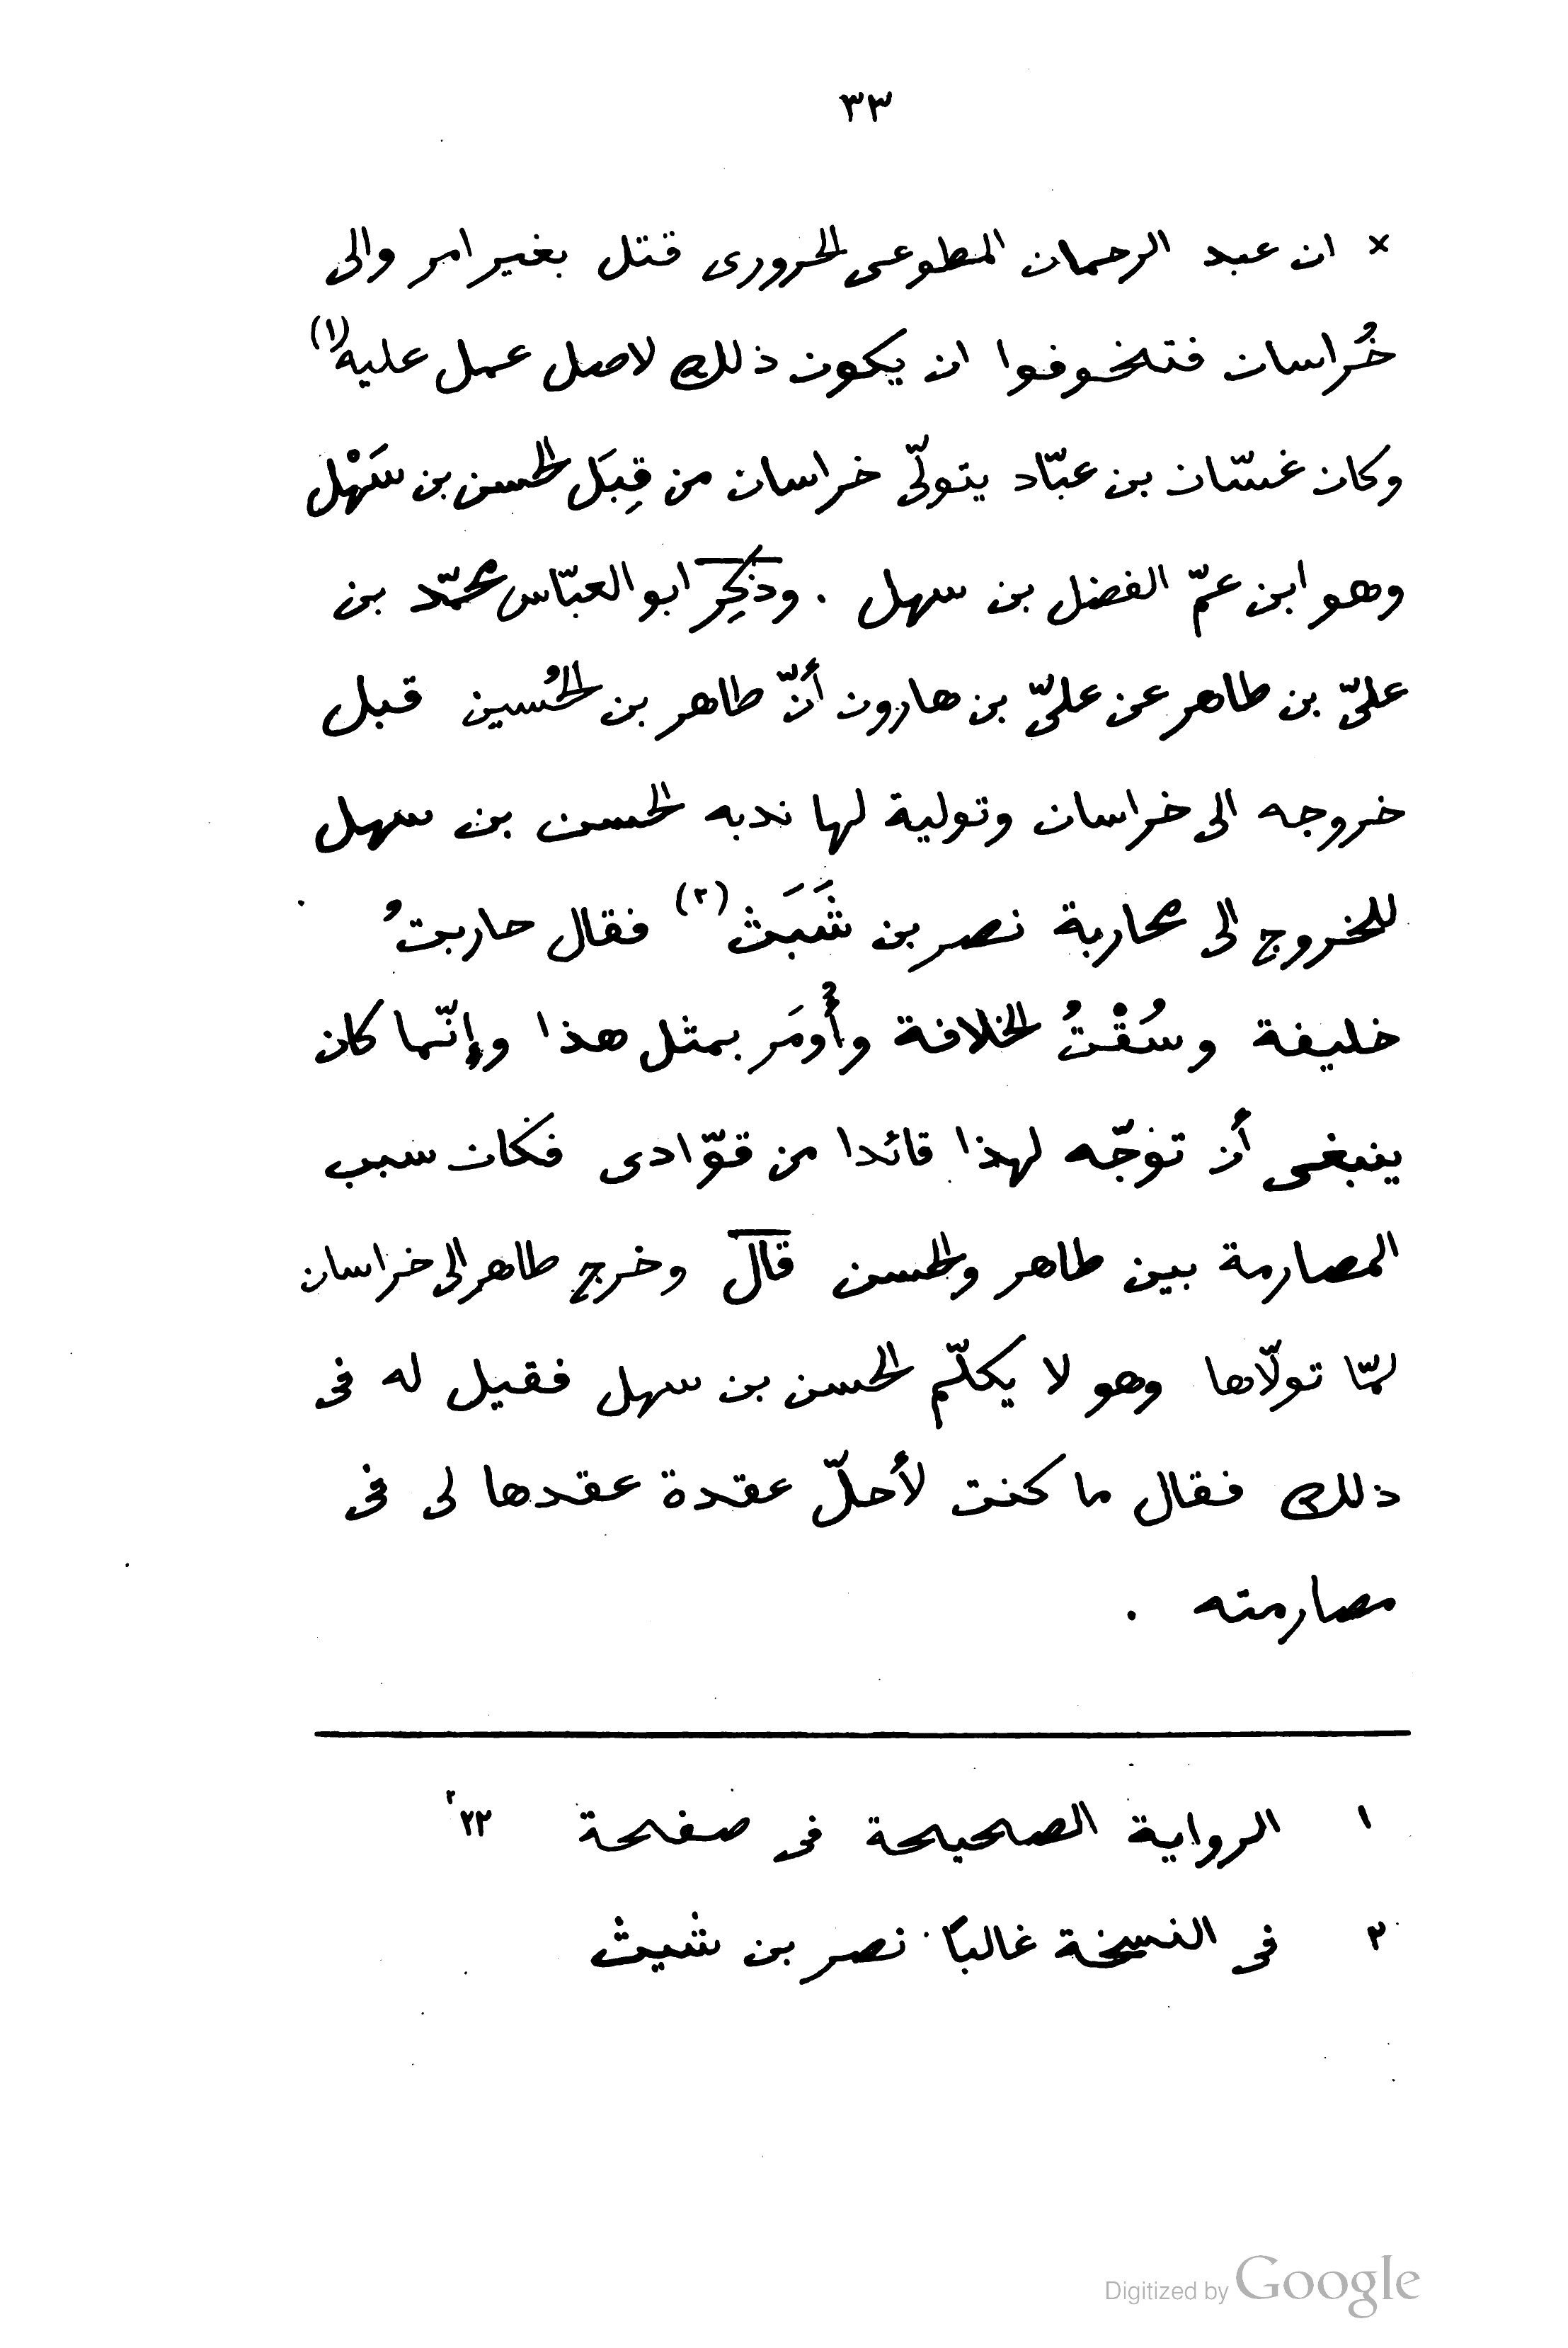 ٣٣
× ان عبد الرحمان المطوعى الحرورى قتل بغير امر والى
خُراسان فتخوفوا ان يكون ذلك لاصل عمل عليه (١)
وكان غسّان بن عبّاد يتولّى خراسان من قِبَل الحسن بن سَهْل
وهو ابن عمّ الفضل بن سهل . وذكِر ابو العبّاس محمّد بن
علىّ بن طاهر عن علىّ بن هارون أنّ طاهر بن الحُسين قبل
خروجه الى خراسان وتولية لها ندبه الحسن بن سهل
للخروج الى محاربة نصر بن شَبَث (٢) فقال حاربتُ
خليفة وسُقْتُ الخلافة وأُومَر بمثل هذا وإنّما كان
ينبغى أن توجّه لهذا قائدا من قوّادى فكان سبب
المصارمة بين طاهر والحسن قال وخرج طاهر الى خراسان
لمّا تولّاها وهو لا يكلّم الحسن بن سهل فقيل له فى
ذلك فقال ما كنت لأحلّ عقدة عقدها لى فى
مصارمته .
١ الرواية الصحيحة فى صفحة ٢٢
٢ فى النسخة غالبًا نصر بن شيث
Digitized by Google